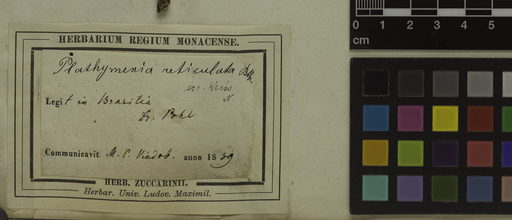 HERBARIUM REGIUM MONACENSE.
Plathymenia reticulata Bth.
Legit in Brasilia
Pohl
Communicavit M. C. Vindob. anno 1839
HERB. ZUCCARINII.
Herbar. Univ. Ludov. Maximil.
0 1 2 3 4 5
cm